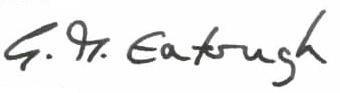 G. M. Eatough